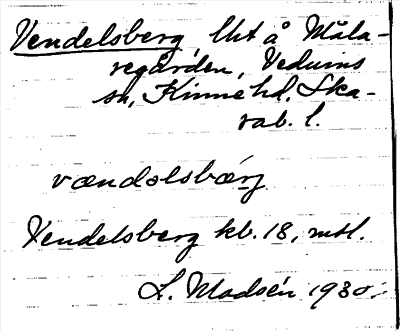 Vendelsberg lht å Måla-
regården, Vedums
sn, Kinne hd. Ska-
rab. l.
vændəlsbærj
Vendelsberg kb. 18, mtl.
L. Madsén 1930.